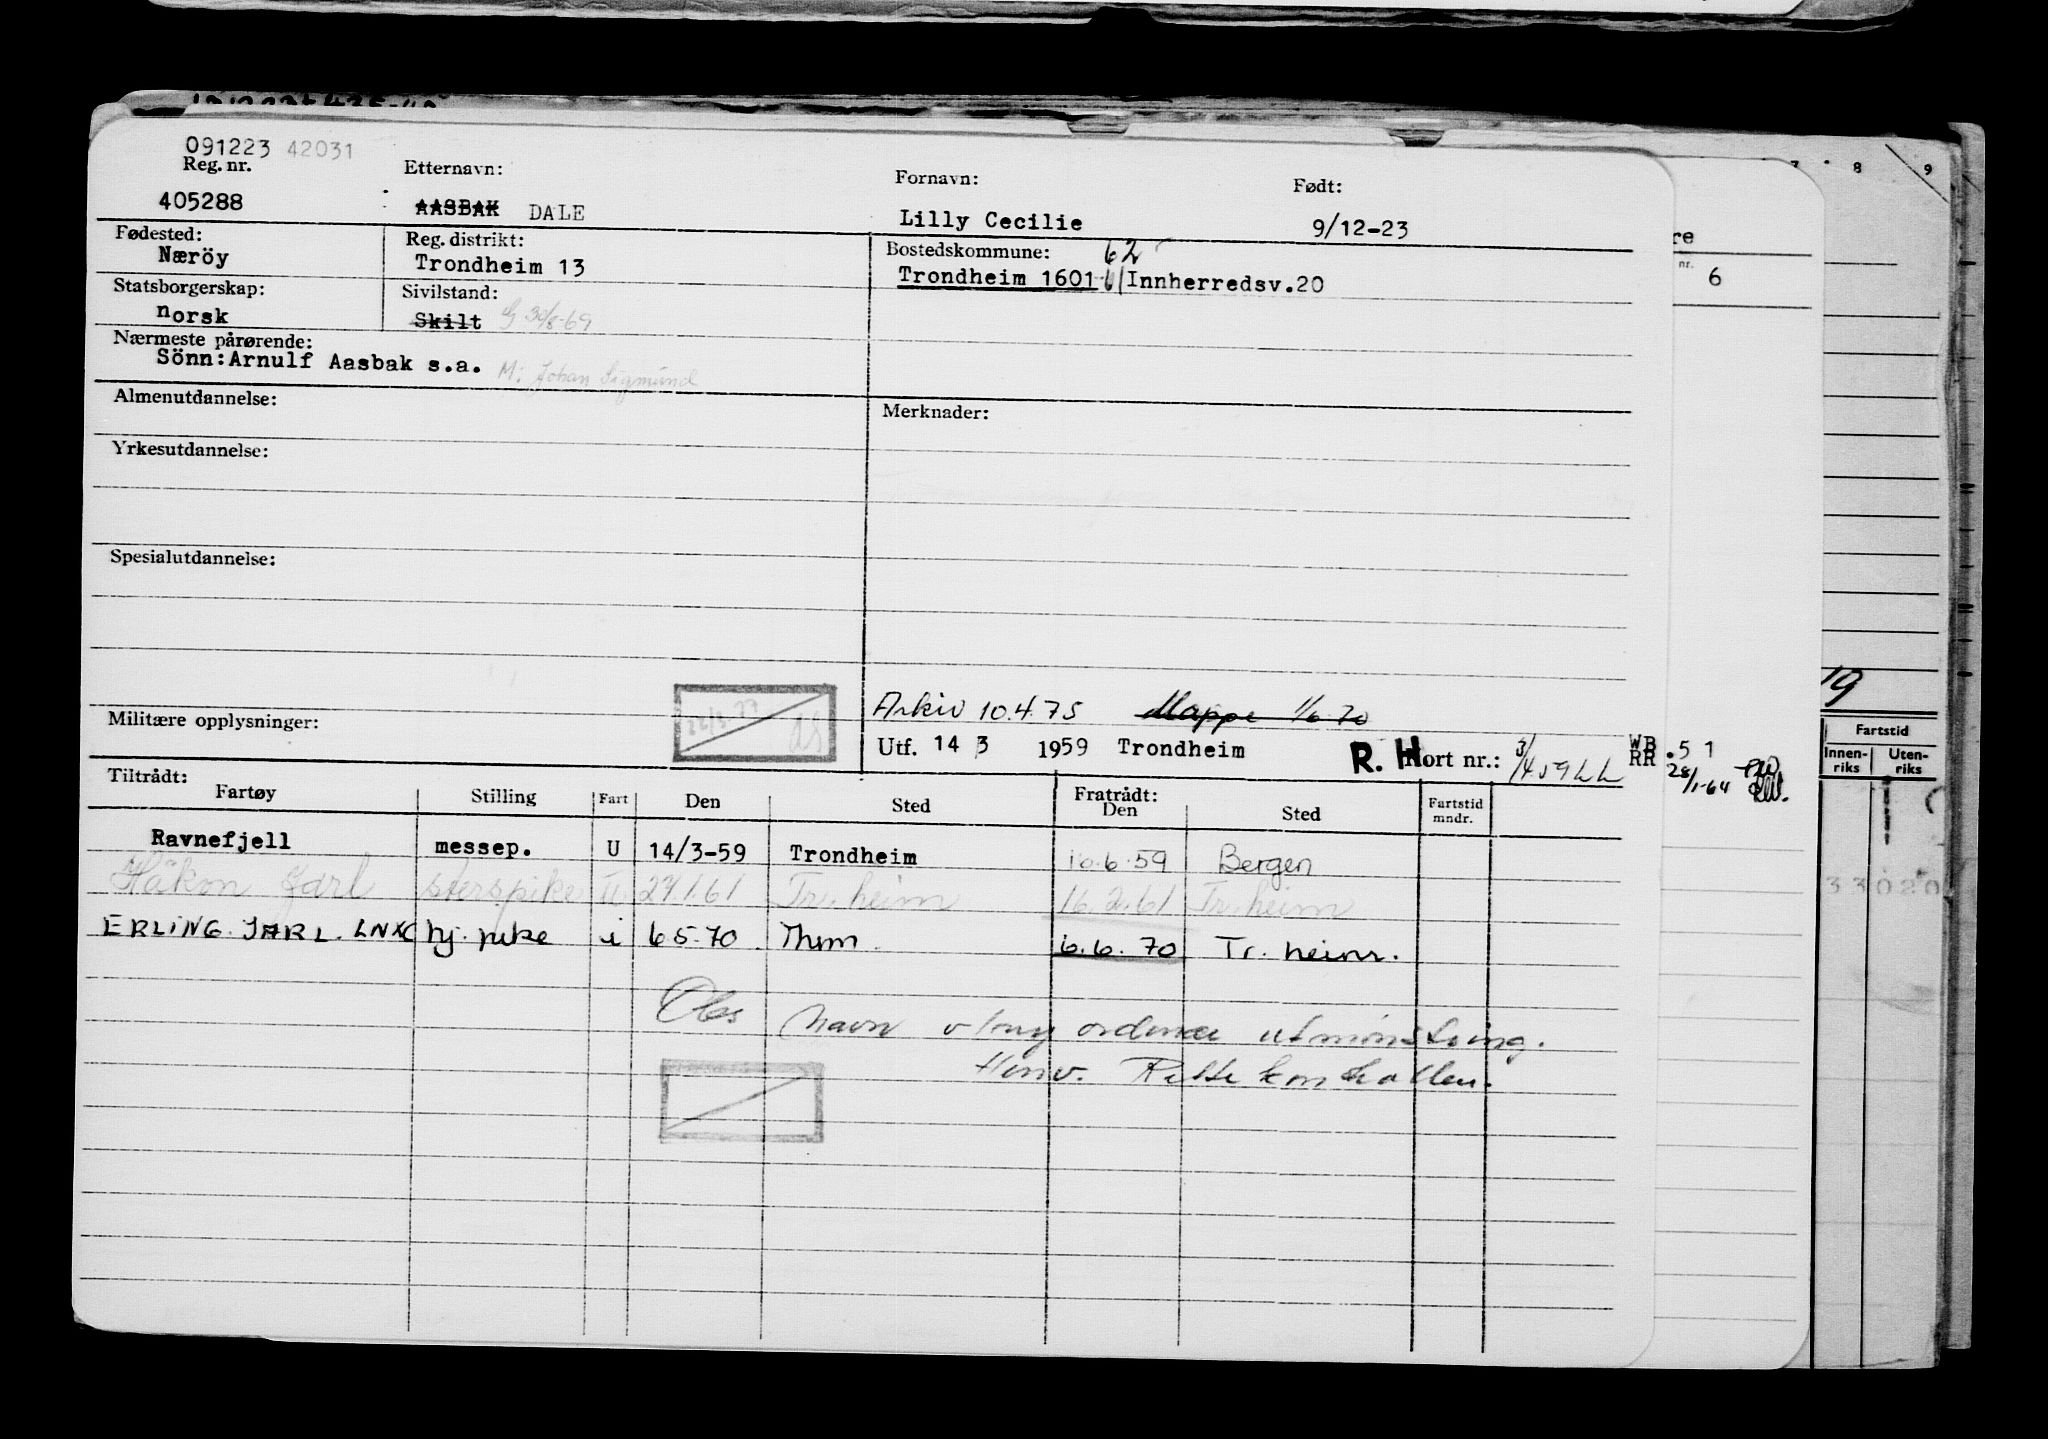 091223 42031
Reg. nr. Etternavn: Fornavn: Født:
405288 AASBAK DALE Lilly Cecilie 9/12-23
Fødested: Reg. distrikt: Bostedskommune: 62
Næröy Trondheim 13 Trondheim 1601 Innherredsv.20
Statsborgerskap: Sivilstand:
norsk Skilt G 30/8-69
Nærmeste pårørende:
Sönn:Arnulf Aasbak s.a. M: Johan Sigmund
Almenutdannelse: Merknader:
Yrkesutdannelse:
Spesialutdannelse:
Arkiv 10.4.75 Mappe 1/6 70
Militære opplysninger:
Utf. 14 3 1959 Trondheim R. H ort nr.:
Tiltrådt: Fratrådt:
Fartøy Stilling Fart Den Sted Den Sted Fartstid mndr.
Ravnefjell messep. U 14/3-59 Trondheim 10.6.59 Bergen
Håkon Jarl U 27.1.61 Tr.heim 16.2.61 Tr.heim
ERLING JARL. LNXC hj. pike i 6 5.70 Thm. 6.6.70 Tr. heim.
Obs Navn ordinær utmønstring.
Henv. Rette kontrollen.
7 8 9
re
nr.
6
19
WB
RR
.51
28/1-64
Fartstid
Innen-riks Uten-riks
33020